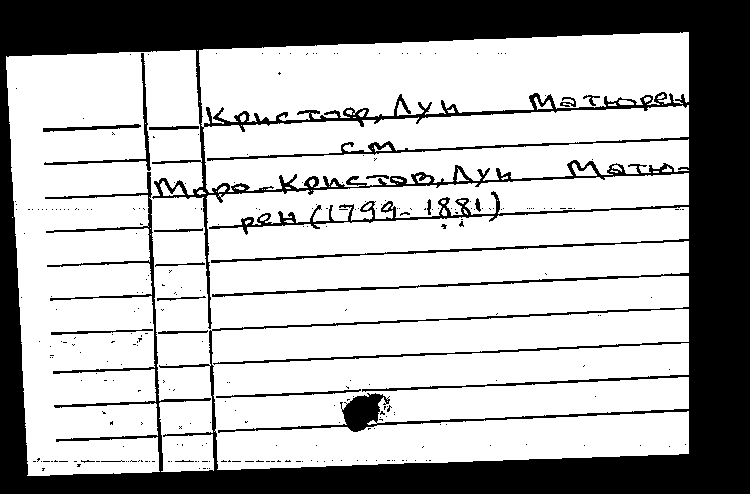 Кристоф, Луи Матюрен
см.
Моро-Кристов, Луи Матю-
рен (1799-1881)